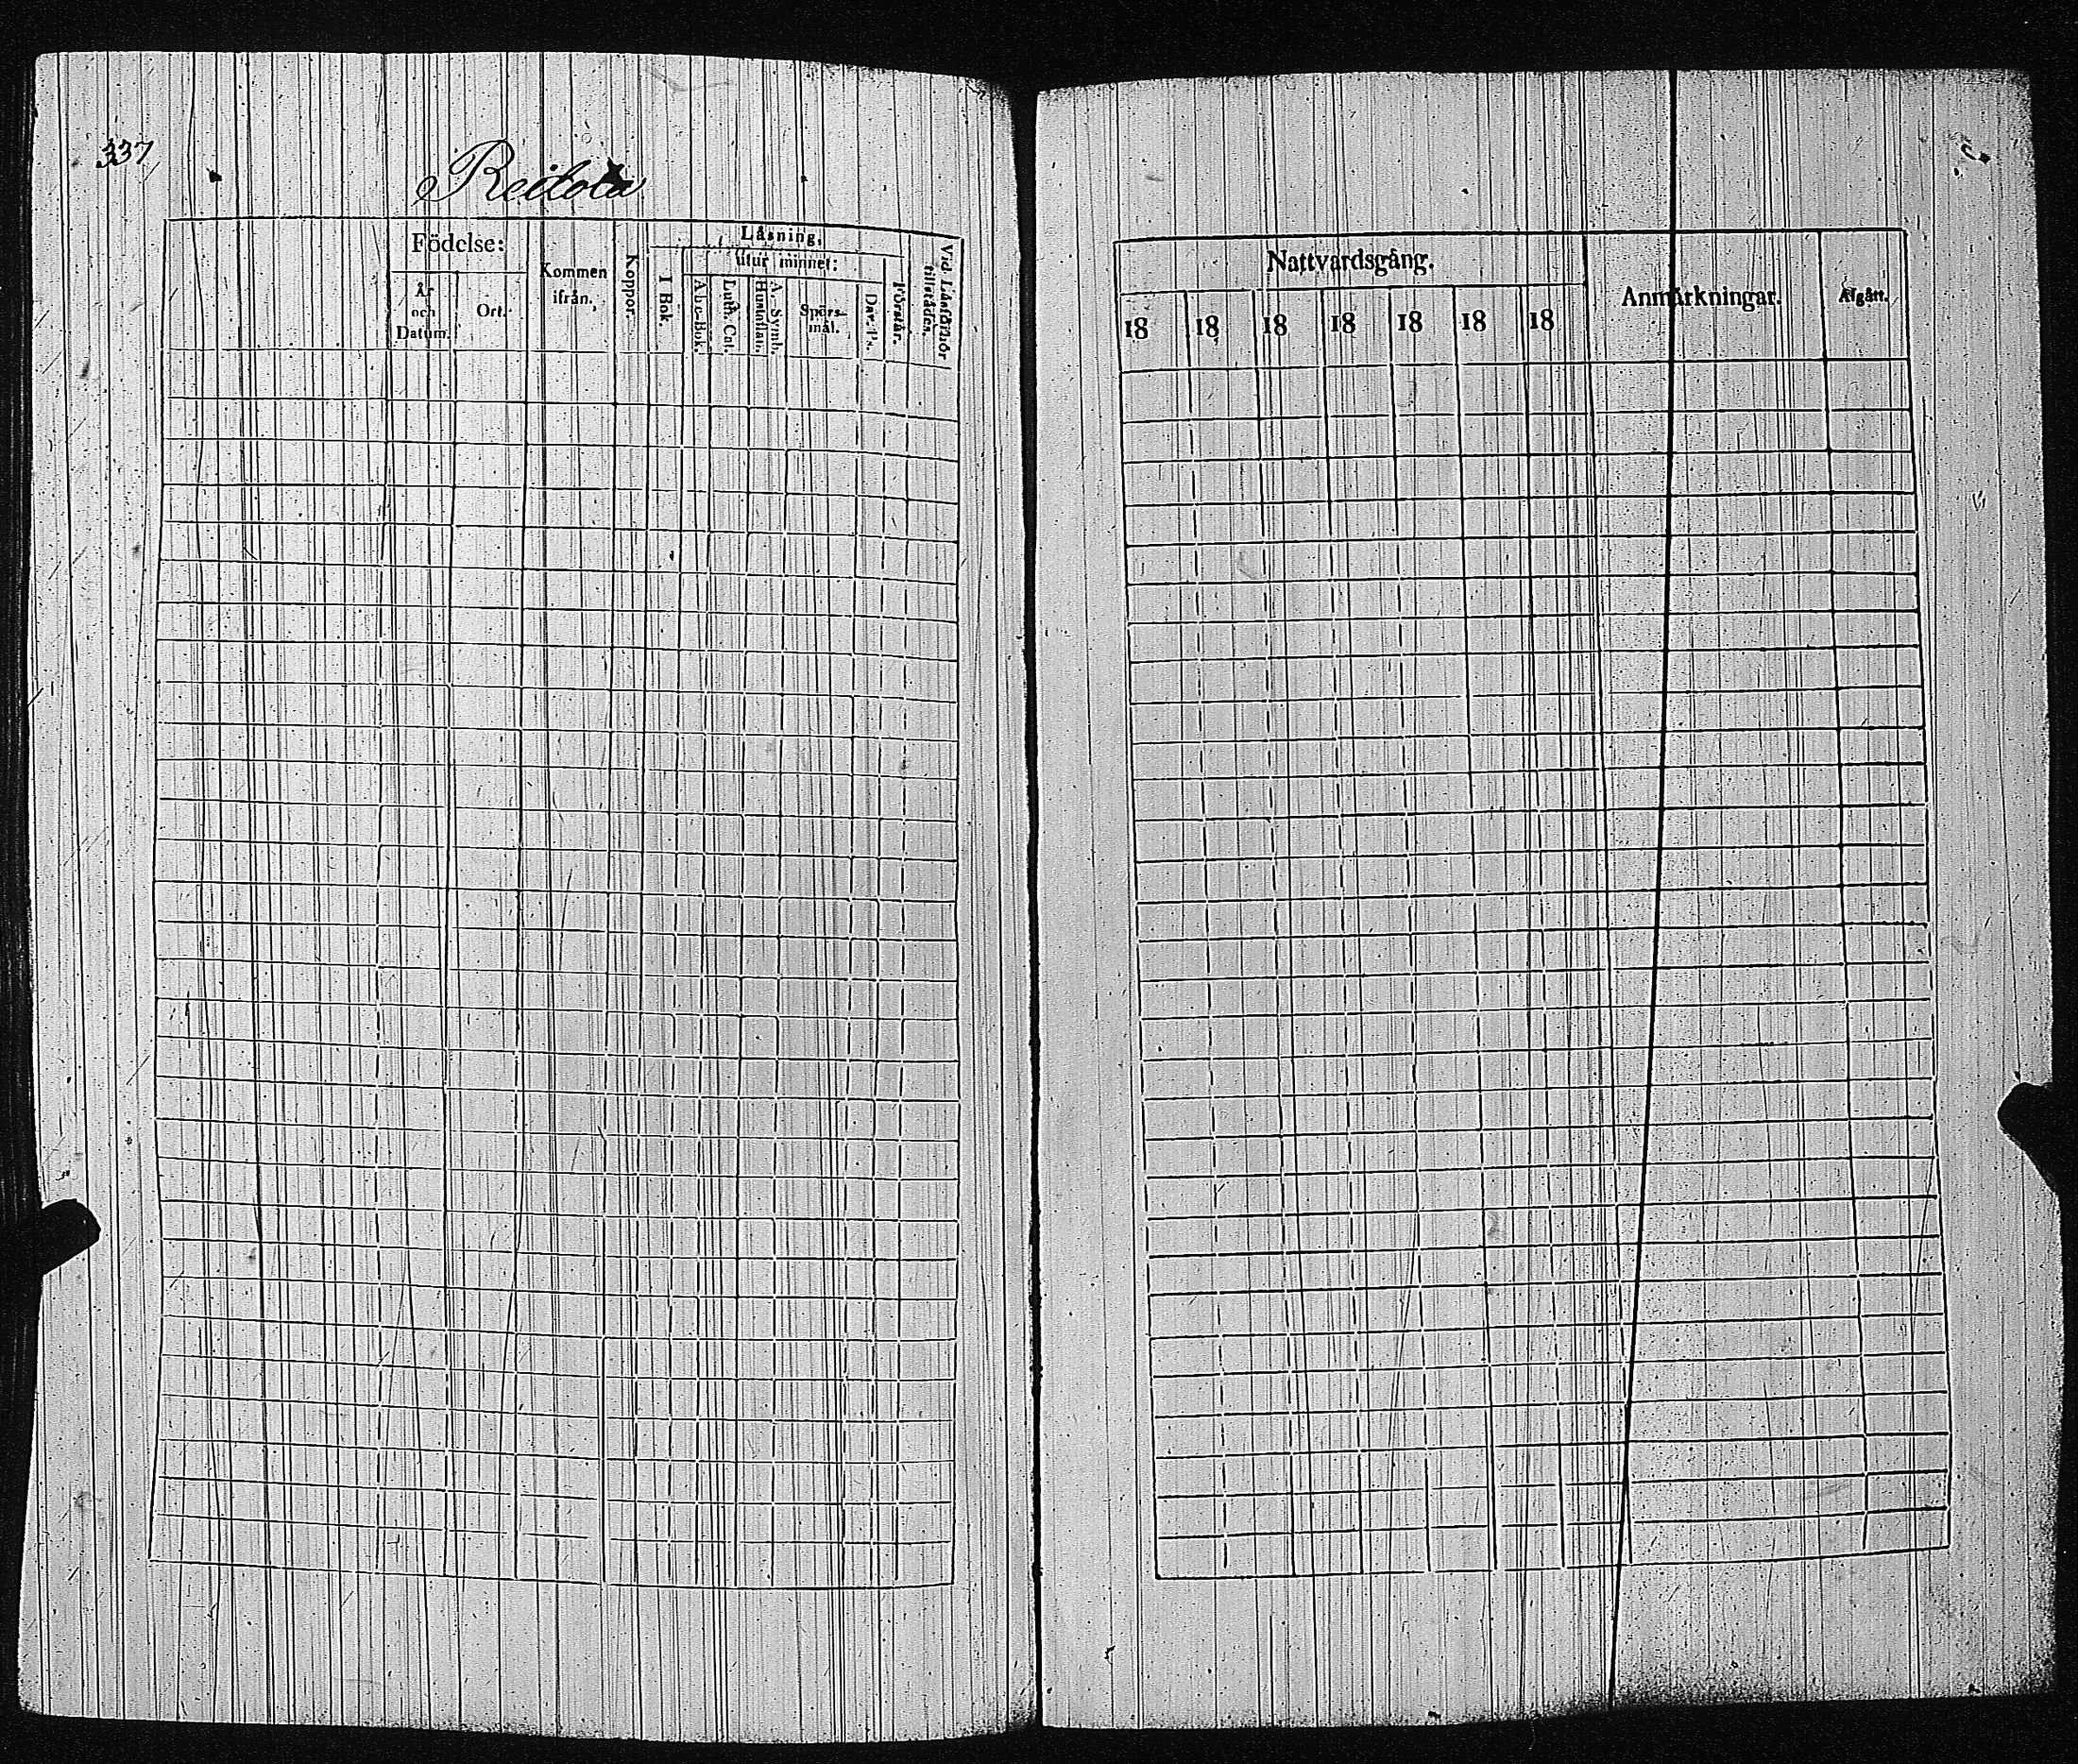 337
Reilola
Födelse:
År
och
Datum.
Ort.
Kommen
ifrån.
Koppor.
Läsning,
I Bok.
utur minnet:
A b c-Bok.
Luth. Cat.
A. Symb.
Hustaflan.
Spörs-
mål.
Dav. Ps.
Förstår.
Vid Läsförhör
tillstädes.
Nattvardsgång.
18 18 18 18 18 18 18
Anmärkningar.
Afgått.